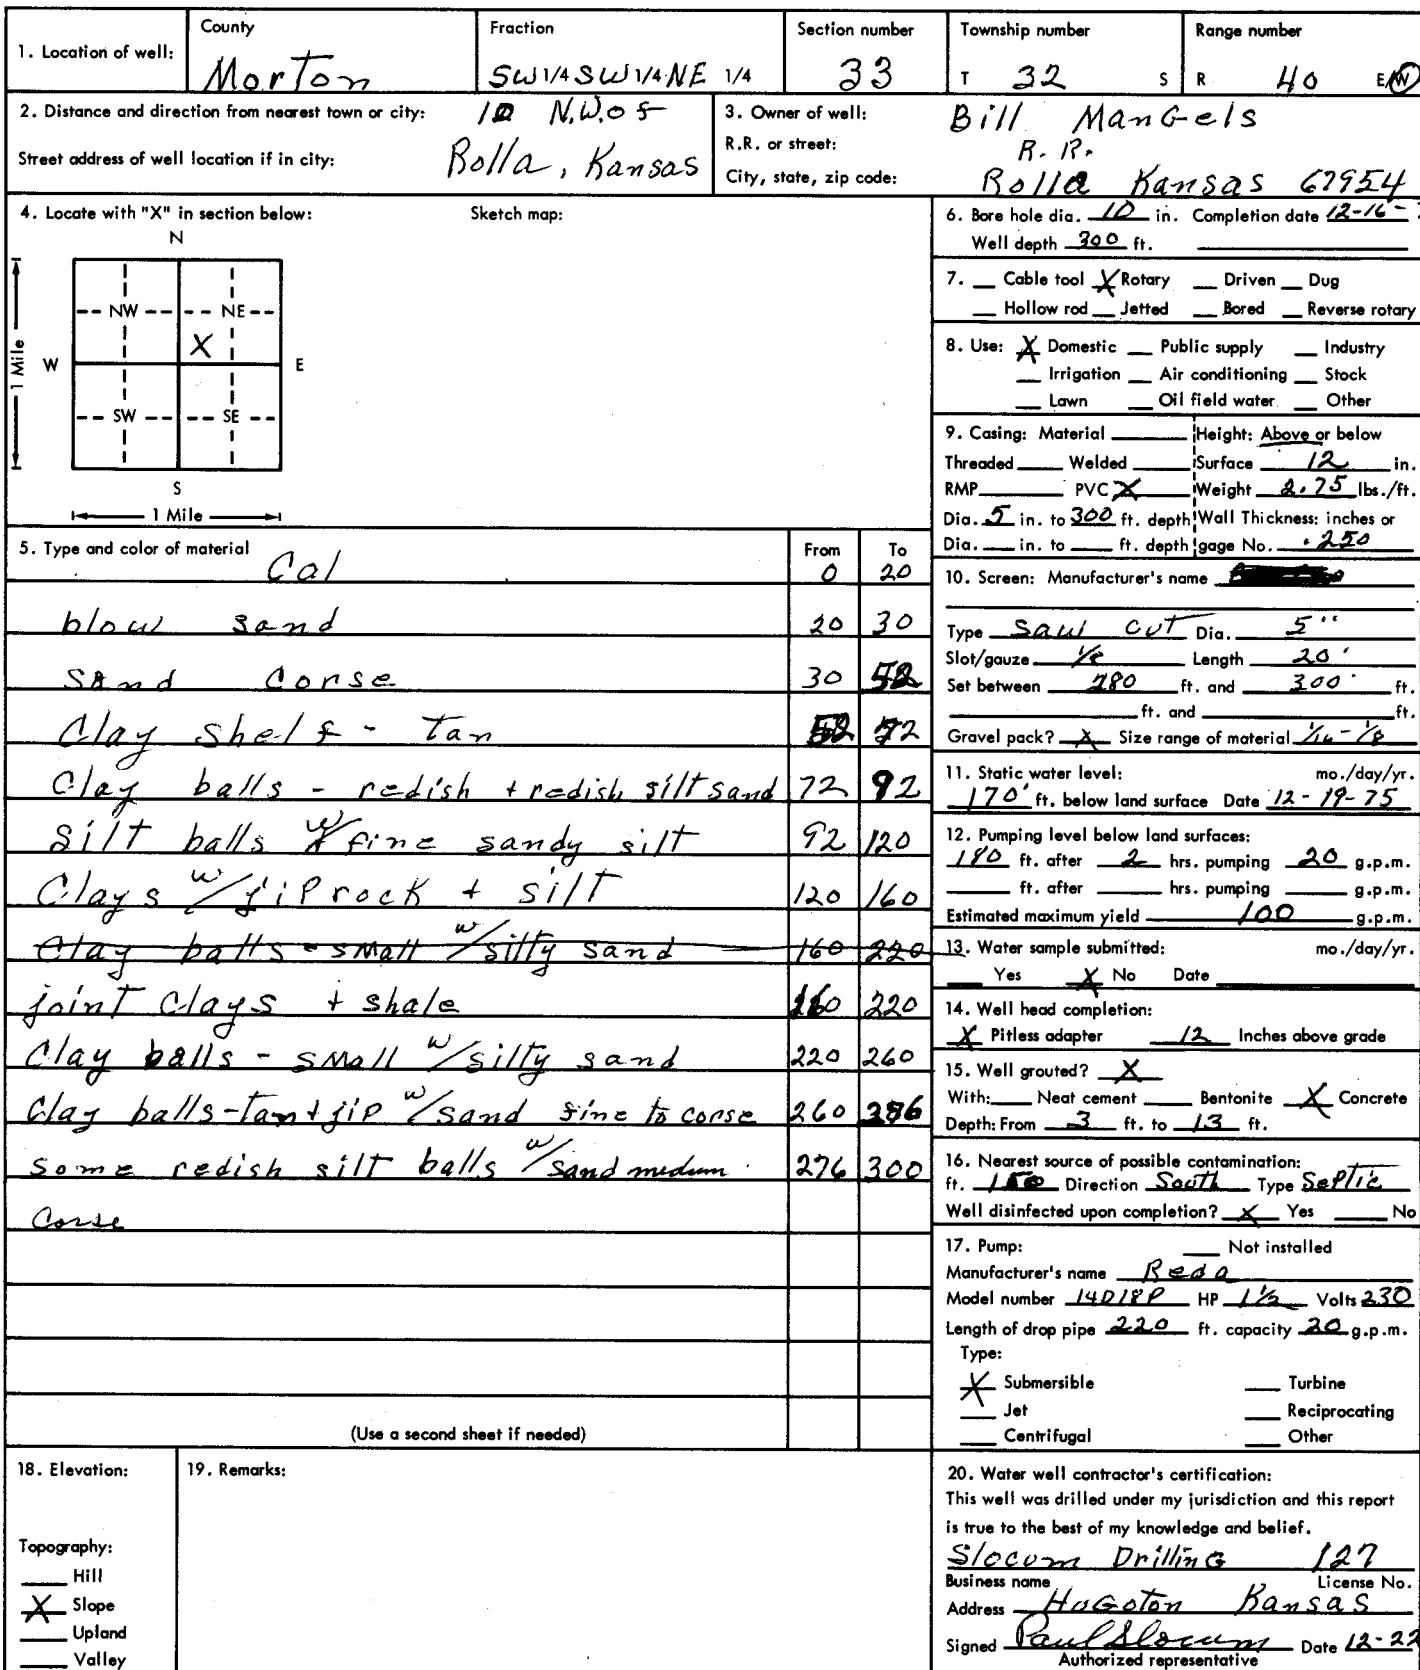 1. Location of well:
County
Morton
Fraction
SW 1/4 SW 1/4 NE 1/4
Section number
33
Township number
T 32 S
Range number
R 40 E/W
2. Distance and direction from nearest town or city: N.W. of
Street address of well location if in city: Rolla, Kansas
3. Owner of well: Bill Mangels
R.R. or street: R.R.
City, state, zip code: Rolla Kansas 67954
4. Locate with "X" in section below:
Sketch map:
N
NW NE
X
W E
1 Mile
SW SE
S
1 Mile
5. Type and color of material From To
Cal 0 20
blow sand 20 30
Sand Corse 30 52
Clay shelf - Tan 52 72
Clay balls - redish + redish silt sand 72 92
Silt balls w/ fine sandy silt 92 120
Clays w/ jiprock + silt 120 160
Clay balls - small w/ silty sand 160 220
joint Clays + shale 160 220
Clay balls - small w/ silty sand 220 260
Clay balls - Tan + jip w/ sand fine to corse 260
some redish silt balls w/ sand medium 276 300
Corse
(Use a second sheet if needed)
6. Bore hole dia. 10 in. Completion date 12-16-
Well depth 300 ft.
7. Cable tool X Rotary Driven Dug
Hollow rod Jetted Bored Reverse rotary
8. Use: X Domestic Public supply Industry
Irrigation Air conditioning Stock
Lawn Oil field water Other
9. Casing: Material Height: Above or below
Threaded Welded Surface 12 in.
RMP PVC X Weight 2.75 lbs./ft.
Dia. 5 in. to 300 ft. depth Wall Thickness: inches or
Dia. in. to ft. depth gage No. .250
10. Screen: Manufacturer's name
Type Saw cut Dia. 5"
Slot/gauze 1/8 Length 20'
Set between 280 ft. and 300' ft.
ft. and ft.
Gravel pack? X Size range of material 1/16 - 1/8
11. Static water level: mo./day/yr.
170' ft. below land surface Date 12-19-75
12. Pumping level below land surfaces:
180 ft. after 2 hrs. pumping 20 g.p.m.
ft. after hrs. pumping g.p.m.
Estimated maximum yield 100 g.p.m.
13. Water sample submitted: mo./day/yr.
Yes X No Date
14. Well head completion:
X Pitless adapter 12 Inches above grade
15. Well grouted? X
With: Neat cement Bentonite X Concrete
Depth: From 3 ft. to 13 ft.
16. Nearest source of possible contamination:
ft. Direction South Type Septic
Well disinfected upon completion? X Yes No
17. Pump: Not installed
Manufacturer's name Reda
Model number 14D18P HP 1 1/2 Volts 230
Length of drop pipe 220 ft. capacity 20 g.p.m.
Type:
X Submersible Turbine
Jet Reciprocating
Centrifugal Other
18. Elevation:
Topography:
Hill
X Slope
Upland
Valley
19. Remarks:
20. Water well contractor's certification:
This well was drilled under my jurisdiction and this report
is true to the best of my knowledge and belief.
Slocum Drilling 127
Business name License No.
Address Hugoton Kansas
Signed Paul Slocum Date 12-22
Authorized representative